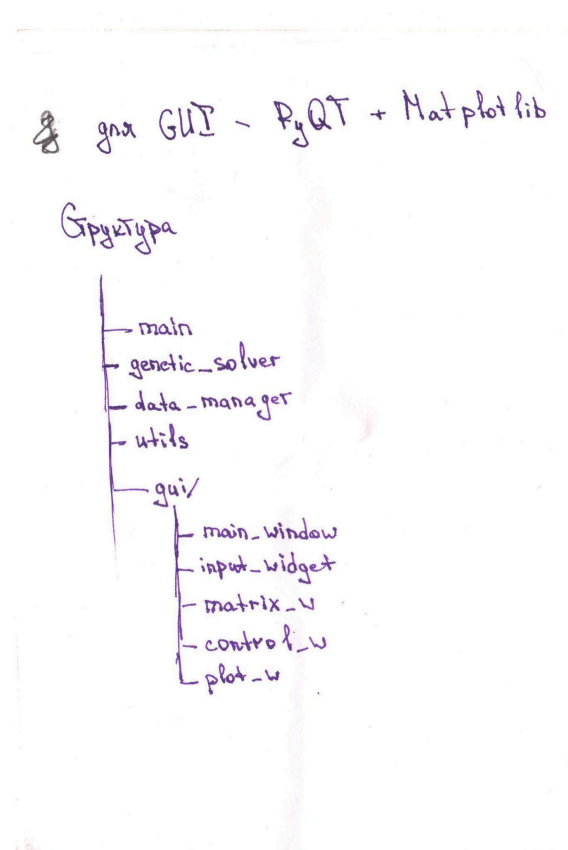 для GUI - PyQT + Matplotlib
Структура
main
genetic_solver
data_manager
utils
gui/
main_window
input_widget
matrix_w
control_w
plot_w